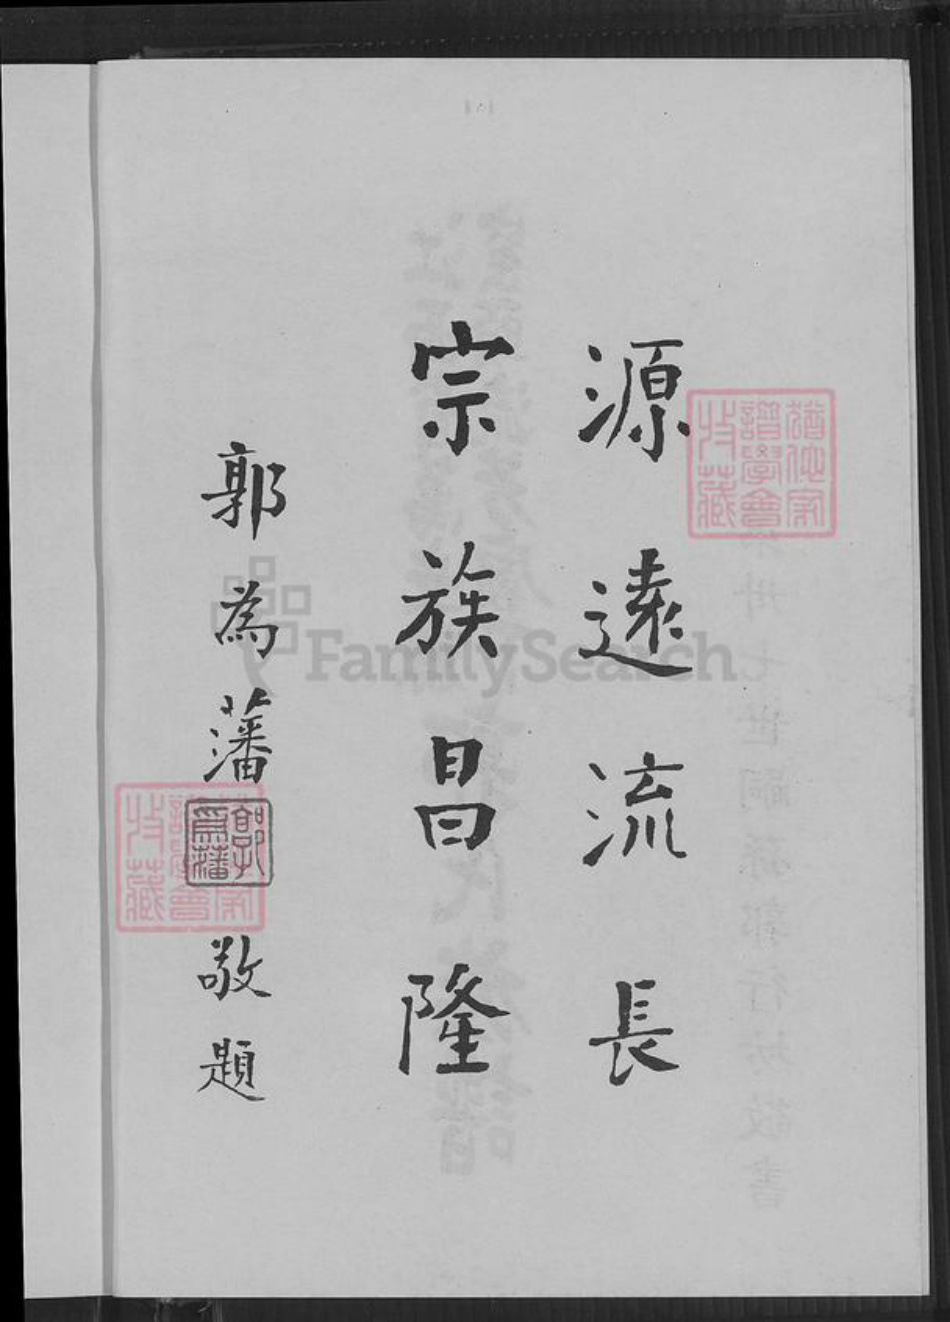 源遠流長
宗族昌隆
郭為藩敬題
郭為藩
猶他家譜學會收藏
猶他家譜學會收藏
FamilySearch